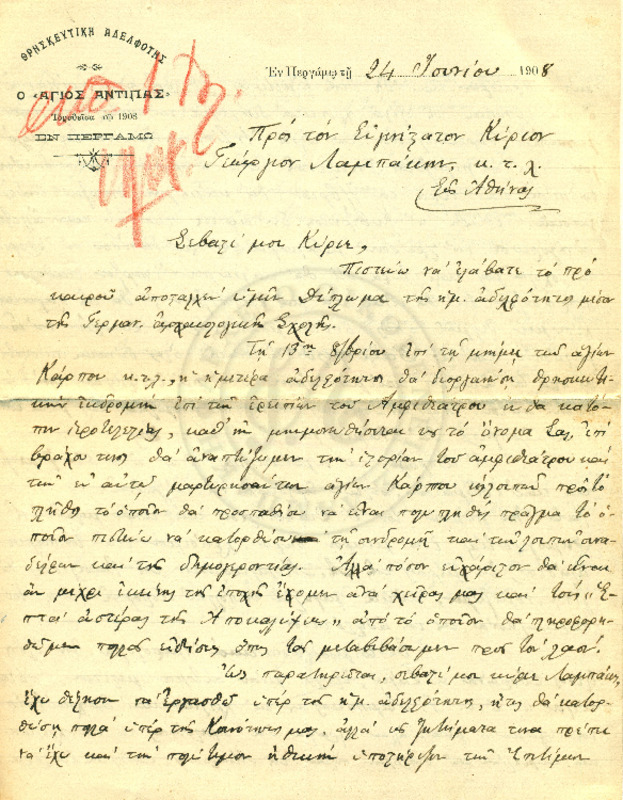 ΘΡΗΣΚΕΥΤΙΚΗ ΑΔΕΛΦΟΤΗΣ
Ο «ΑΓΙΟΣ ΑΝΤΙΠΑΣ»
Ἱδρυθεῖσα τῷ 1908
ΕΝ ΠΕΡΓΑΜΩ
Ἐν Περγάμῳ τῇ 24 Ἰουνίου 1908
Πρὸς τὸν Εὐγενέστατον Κύριον
Γεώργιον Λαμπάκην, κ.τ.λ.
Εἰς Ἀθήνας
Σεβαστέ μοι Κύριε,
Πιστεύω νὰ ἐλάβατε τὸ πρὸ
καιροῦ ἀποσταλὲν ὑμῖν δίπλωμα τῆς ἡμ. ἀδελφότητος μέσον
τῆς Γερμαν. ἀρχαιολογικῆς Σχολῆς.
Τῇ 13ῃ 8/βρίου ἐπὶ τῇ μνήμῃ τῶν ἁγίων
Κάρπου κ.τ.λ., ἡ ἡμετέρα ἀδελφότης θὰ διοργανώσῃ θρησκευτι-
κὴν ἐκδρομὴν ἐπὶ τῶν ἐρειπίων τοῦ Ἀμφιθεάτρου θὰ κατό-
πιν ἱεροτελεστίας, καθ' ἣν μνημονευθήσεται τὸ ὄνομά Σας, ἐπὶ
βράχου τινος θὰ ἀναπτύξωμεν τὴν ἱστορίαν τοῦ ἀμφιθεάτρου καὶ
τῶν ἐν αὐτῷ μαρτυρησάντων ἁγίων Κάρπου κ. λοιπῶν πρὸς τὸ
πλῆθος τὸ ὁποῖον θὰ προσπαθήσω νὰ εἶναι πολυπληθὲς πρᾶγμα τὸ ὁ-
ποῖον πιστεύω νὰ κατορθώσω τῇ συνδρομῇ καὶ τῶν λοιπῶν συνα-
δέλφων καὶ τῆς δημογεροντίας. Ἀλλὰ πόσον εὐχάριστον θὰ εἶναι
ἂν μέχρι ἐκείνης τῆς ἐποχῆς ἔχομεν ἀνὰ χεῖρας μας καὶ τοὺς «Ἑ-
πτὰ ἀστέρας τῆς Ἀποκαλύψεως» ἀπὸ τὸ ὁποῖον θὰ πληροφορη-
θῶμεν πολλὰς εἰδήσεις ὅπως τὰς μεταβιβάσωμεν πρὸς τὸν λαόν.
Ὡς παρατηρεῖται, σεβαστέ μοι κύριε Λαμπάκη,
ἔχω θέλησιν νὰ ἐργασθῶ ὑπὲρ τῆς ἡμ. ἀδελφότητος, ἥτις θὰ κατορ-
θώσῃ πολλὰ ὑπὲρ τῆς Κοινότητός μας, ἀλλὰ εἰς ζητήματά τινα πρέπει
νὰ ἔχῃ καὶ τὴν πολύτιμον ἠθικὴν ὑποστήριξιν τῶν ἐπιτίμων